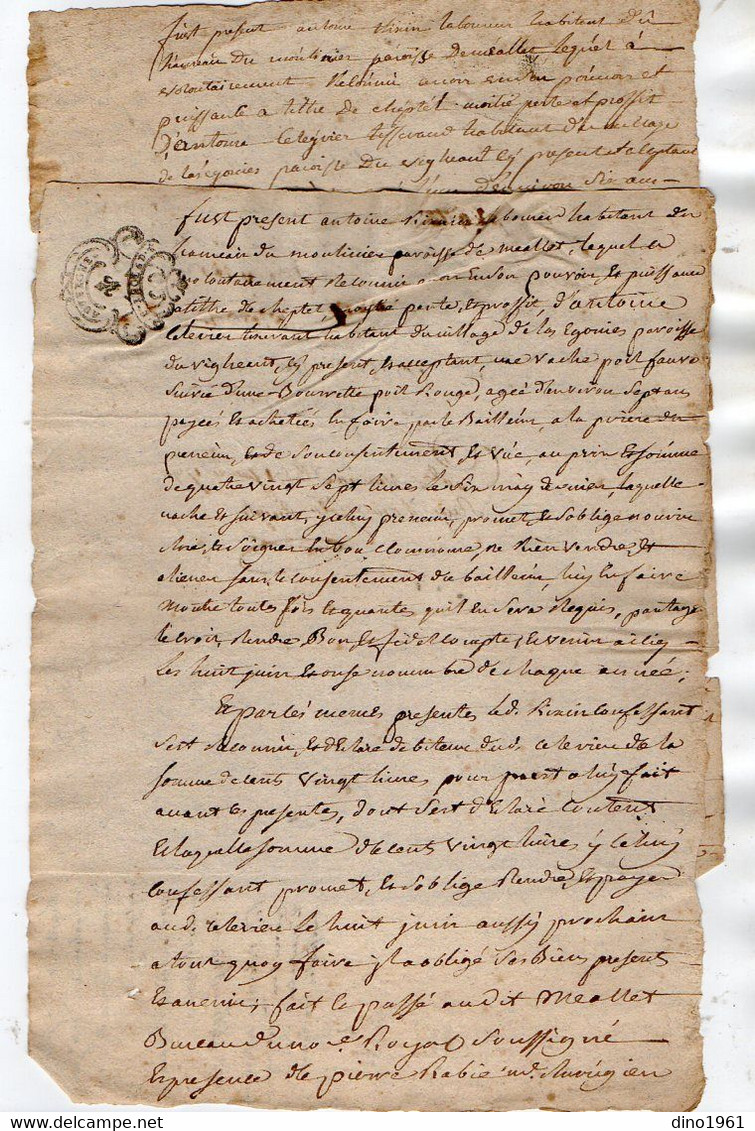 fust present antoine Vixin laboureur habitant du
hameau du moulinier paroisse de meallet lequel a
volontairement Reconnu avoir en son pouvoir et
puissance a tiltre de cheptel moitié perte et proffit
D'antoine Celeyrier tisserand habitant du village
de las egonies paroisse du vigheant cy present et acceptant
d'environ six ans
fust present antoine Vixin laboureur habitant du
hameau du moulinier paroisse de meallet, lequel a
volontairement Reconnu avoir en son pouvoir, et puissance
a tiltre de cheptel, moytié perte, et proffit, d'antoine
Celerier tisserant habitant du village de las Egonies paroisse
du vigheant, cy present, et acceptant, une vache poil fauve
suivie d'une Bourrette poil Rouge, agée d'environ sept ans
payées et achetées en foire par le Bailleur, a la priere du
preneur, et de son consentement, et vüe, au prix et somme
de quatre vingt sept livres le six may dernier, laquelle
vache et suivant, yceluy preneur, promet, et s'oblige nourrir
et soigner en bon et ne Rien vendre, et
aliener sans le consentement du bailleur, luy en faire
montre toutes fois et quantes qu'il en sera Requis, partager
le croix, Rendre Bon et fidel compte, et venir a
les huit juin et onse novembre de chaque année;
Et par les memes presentes led. Vixin Confessant
s'est reconnu, et declaré debiteur dud. celerier de la
somme de cent vingt livres pour prest a luy fait
avant ces presentes, dont s'est declaré Content
Et laquelle somme de cent vingt livres yceluy
Confessant promet, et s'oblige Rendre, et payer
aud. celerier le huit juin aussy prochain
a tout quoy faire il a obligé ses Biens presents
Et avenir; fait et passé audit Meallet
Bureau du no.re Royal soussigné
En presence de pierre Rabie m.e chirurgien
AUVERGNE
dino1961